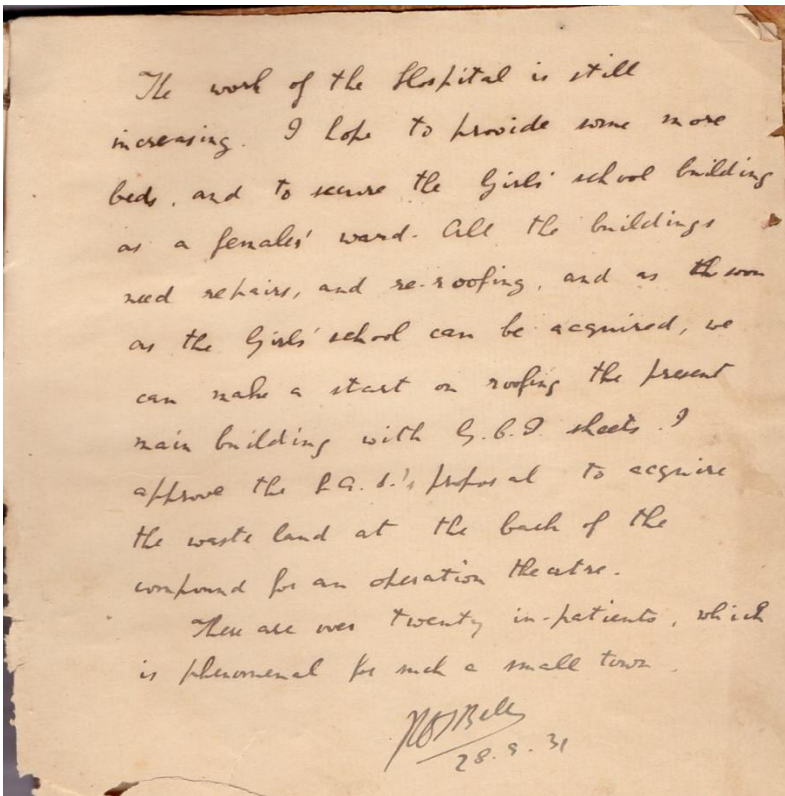 The work of the Hospital is still
increasing. I hope to provide some more
beds, and to secure the Girls' school building
as a females' ward. All the buildings
need repairs, and re-roofing, and as soon
as the Girls' school can be acquired, we
can make a start on roofing the present
main building with G.C.I. sheets. I
approve the S.A.S.'s proposal to acquire
the waste land at the back of the
compound for an operation theatre.
There are over twenty in-patients, which
is phenomenal for such a small town.
28.9.31